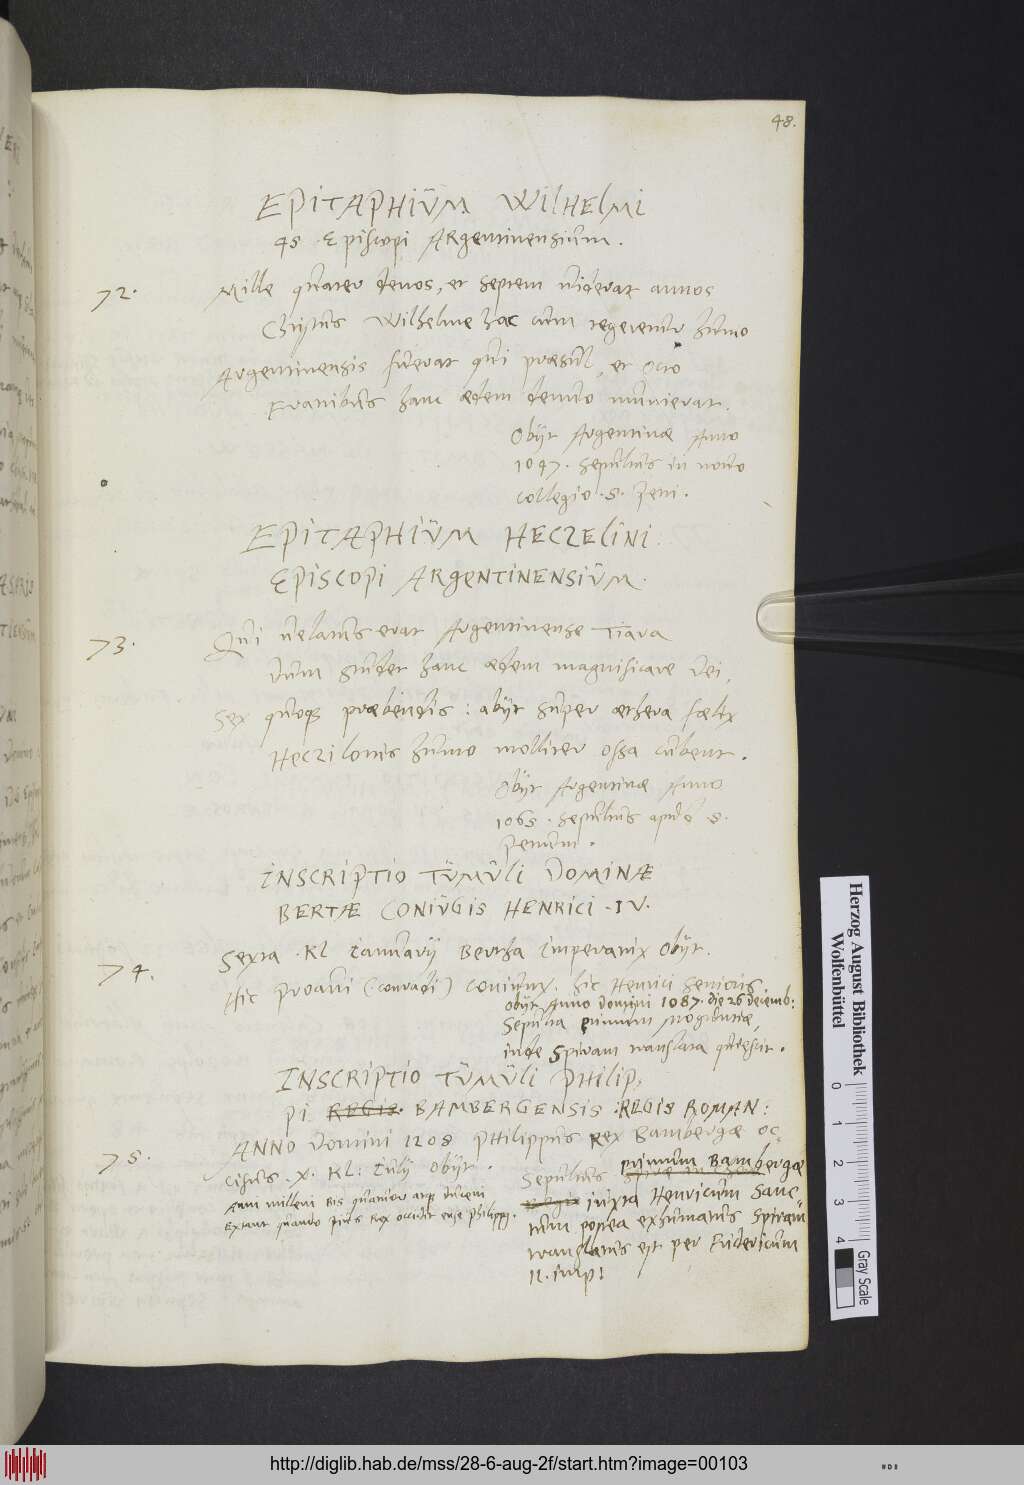 48.
EPITAPHIŪM WILHELMI
45 Episcopi ARgentinensiūm.
72. Mille quater denos, et septem viderat annos
Christus Wilhelme hac cum tegerentur humo
Argentinensis fuerat qui præsul, et octo
Fratribus hanc ædem denuo munierat.
Obijt Argentinæ Anno
1047. Sepultus in nouo
collegio .S. Petri.
EPITAPHIŪM HECZELINI.
EPISCOPI ARGENTINENSIŪM.
73. Qui velatus erat Argentinense Tiara
Dum studet hanc ædem magnificare Dei,
Sex quoque præbendis: abijt super æthera fælix
Heczilonis humo molliter ossa cubent.
Obijt Argentinæ Anno
1065. Sepultus apud .S.
Petrum.
INSCRIPTIO TŪMŪLI DOMINÆ
BERTÆ CONIŪGIS HENRICI .IV.
74. Sexta .KL Ianuarij Bertha Imperatrix Obijt.
Hic Proaui (Conradi) Coniunx. hic Henrici Senioris
Obijt Anno Domini 1087. die 26 decemb:
Sepulta primum Moguntiæ,
inde Spiram translata quiescit.
INSCRIPTIO TŪMŪLI PHILIP,
PI REGIS. BAMBERGENSIS :REGIS ROMAN:
75. ANNO Domini 1208 PHilippus Rex Bambergæ oc,
cisus .X. KL: Iulij Obijt.
Sepultus primum Bambergæ
Anni milleni Bis quatuor atque duceni
iuxta Henricum Sanc,
Extant quando pius Rex occidit ense Philippus.
tum postea exhumatus Spiram
translatus est per Fridericum
II. imp:
Herzog August Bibliothek
Wolfenbüttel
0 1 2 3 4
Gray Scale
http://diglib.hab.de/mss/28-6-aug-2f/start.htm?image=00103